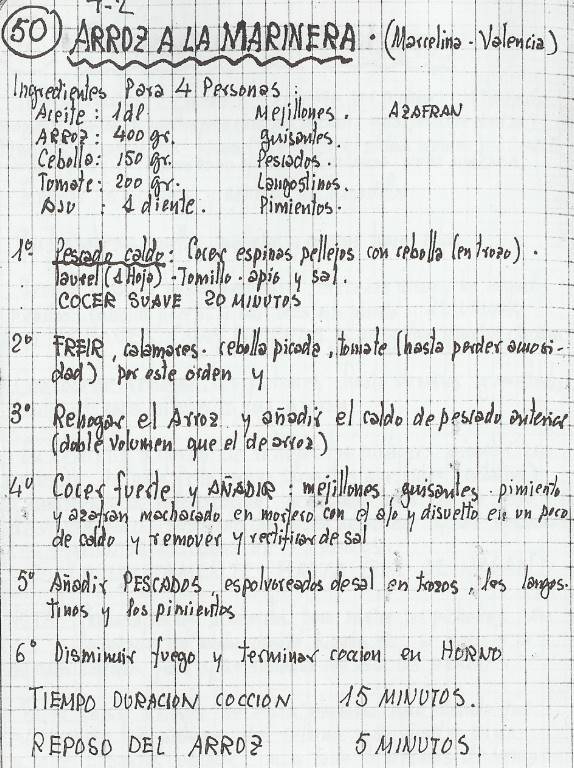 50 ARROZ A LA MARINERA. (Marcelina - Valencia)
Ingredientes Para 4 Personas:
Aceite: 1 dl Mejillones. AZAFRAN
ARROZ: 400 gr. guisantes.
Cebolla: 150 gr. Pescados.
Tomate: 200 gr. Langostinos.
AJO : 1 diente. Pimientos.
1º Pescado caldo: Cocer espinas pellejos con cebolla (en trozo).
laurel (1 Hoja) - Tomillo - apio y sal.
COCER SUAVE 20 MINUTOS
2º FREIR, calamares. cebolla picada, tomate (hasta perder acuosi-
dad) por este orden y
3º Rehogar el Arroz y añadir el caldo de pescado anterior
(doble volumen que el de arroz)
4º Cocer fuerte y AÑADIR: mejillones, guisantes. pimiento
y azafran machacado en mortero con el ajo y disuelto en un poco
de caldo y remover y rectificar de sal
5º Añadir PESCADOS espolvoreados de sal en trozos, los langos-
tinos y los pimientos
6º Disminuir fuego y terminar coccion en HORNO
TIEMPO DURACION COCCION 15 MINUTOS.
REPOSO DEL ARROZ 5 MINUTOS.